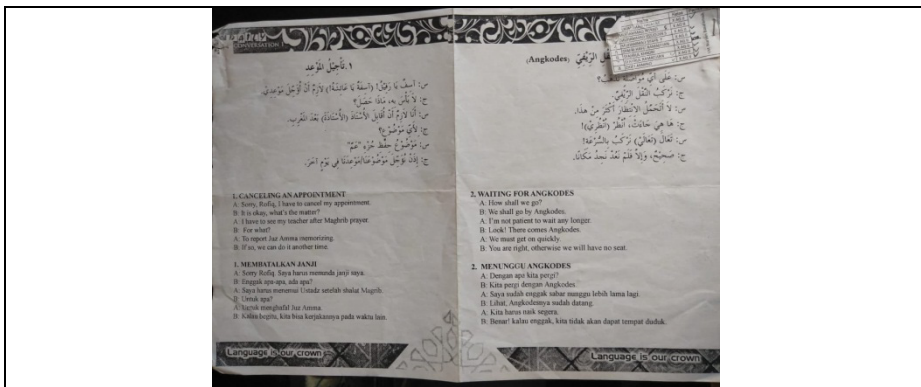 CONVERSATION 1
١. تَأْجِيْلُ المَوْعِدِ
س: آسِفٌ يَا رَفِيْقُ! (آسِفَةٌ يَا عَائِشَةُ!) لاَزِمٌ أَنْ نُؤَجِّلَ مَوْعِدِيْ.
ج: لاَ بَأْسَ بِهِ، مَاذَا حَصَلَ؟
س: أَنَا لاَزِمٌ أَنْ أُقَابِلَ الأُسْتَاذَ (الأُسْتَاذَةَ) بَعْدَ المَغْرِبِ.
ج: لأَيِّ مَوْضُوْعٍ؟
س: مَوْضُوْعُ حِفْظِ جُزْءِ "عَمَّ"
ج: إِذَنْ نُؤَجِّلُ مَوْضُوْعَنَا/مَوْعِدَنَا فِي يَوْمٍ آخَرَ.
1. CANCELING AN APPOINTMENT
A: Sorry, Rofiq, I have to cancel my appointment.
B: It is okay, what's the matter?
A: I have to see my teacher after Maghrib prayer.
B: For what?
A: To report Juz Amma memorizing.
B: If so, we can do it another time.
1. MEMBATALKAN JANJI
A: Sorry Rofiq. Saya harus menunda janji saya.
B: Enggak apa-apa, ada apa?
A: Saya harus menemui Ustadz setelah shalat Magrib.
B: Untuk apa?
A: Untuk menghafal Juz Amma.
B: Kalau begitu, kita bisa kerjakannya pada waktu lain.
Language is our crown
الرِّيْفِيّ (Angkodes)
س: عَلَى أَيِّ مُوَاصَلَةٍ نَذْهَبُ؟
ج: نَرْكَبُ النَّقْلَ الرِّيْفِيَّ.
س: لاَ أَتَحَمَّلُ الاِنْتِظَارَ أَكْثَرَ مِنْ هذَا.
ج: هَا هِيَ جَاءَتْ، اُنْظُرْ (اُنْظُرِيْ)!
س: تَعَالَ (تَعَالَيْ) نَرْكَبْ بِالسُّرْعَةِ!
ج: صَحِيْحٌ، وَإِلاَّ فَلَمْ نَعُدْ نَجِدُ مَكَانًا.
2. WAITING FOR ANGKODES
A: How shall we go?
B: We shall go by Angkodes.
A: I'm not patient to wait any longer.
B: Look! There comes Angkodes.
A: We must get on quickly.
B: You are right, otherwise we will have no seat.
2. MENUNGGU ANGKODES
A: Dengan apa kita pergi?
B: Kita pergi dengan Angkodes.
A: Saya sudah enggak sabar nunggu lebih lama lagi.
B: Lihat, Angkodesnya sudah datang.
A: Kita harus naik segera.
B: Benar! kalau enggak, kita tidak akan dapat tempat duduk.
Language is our crown